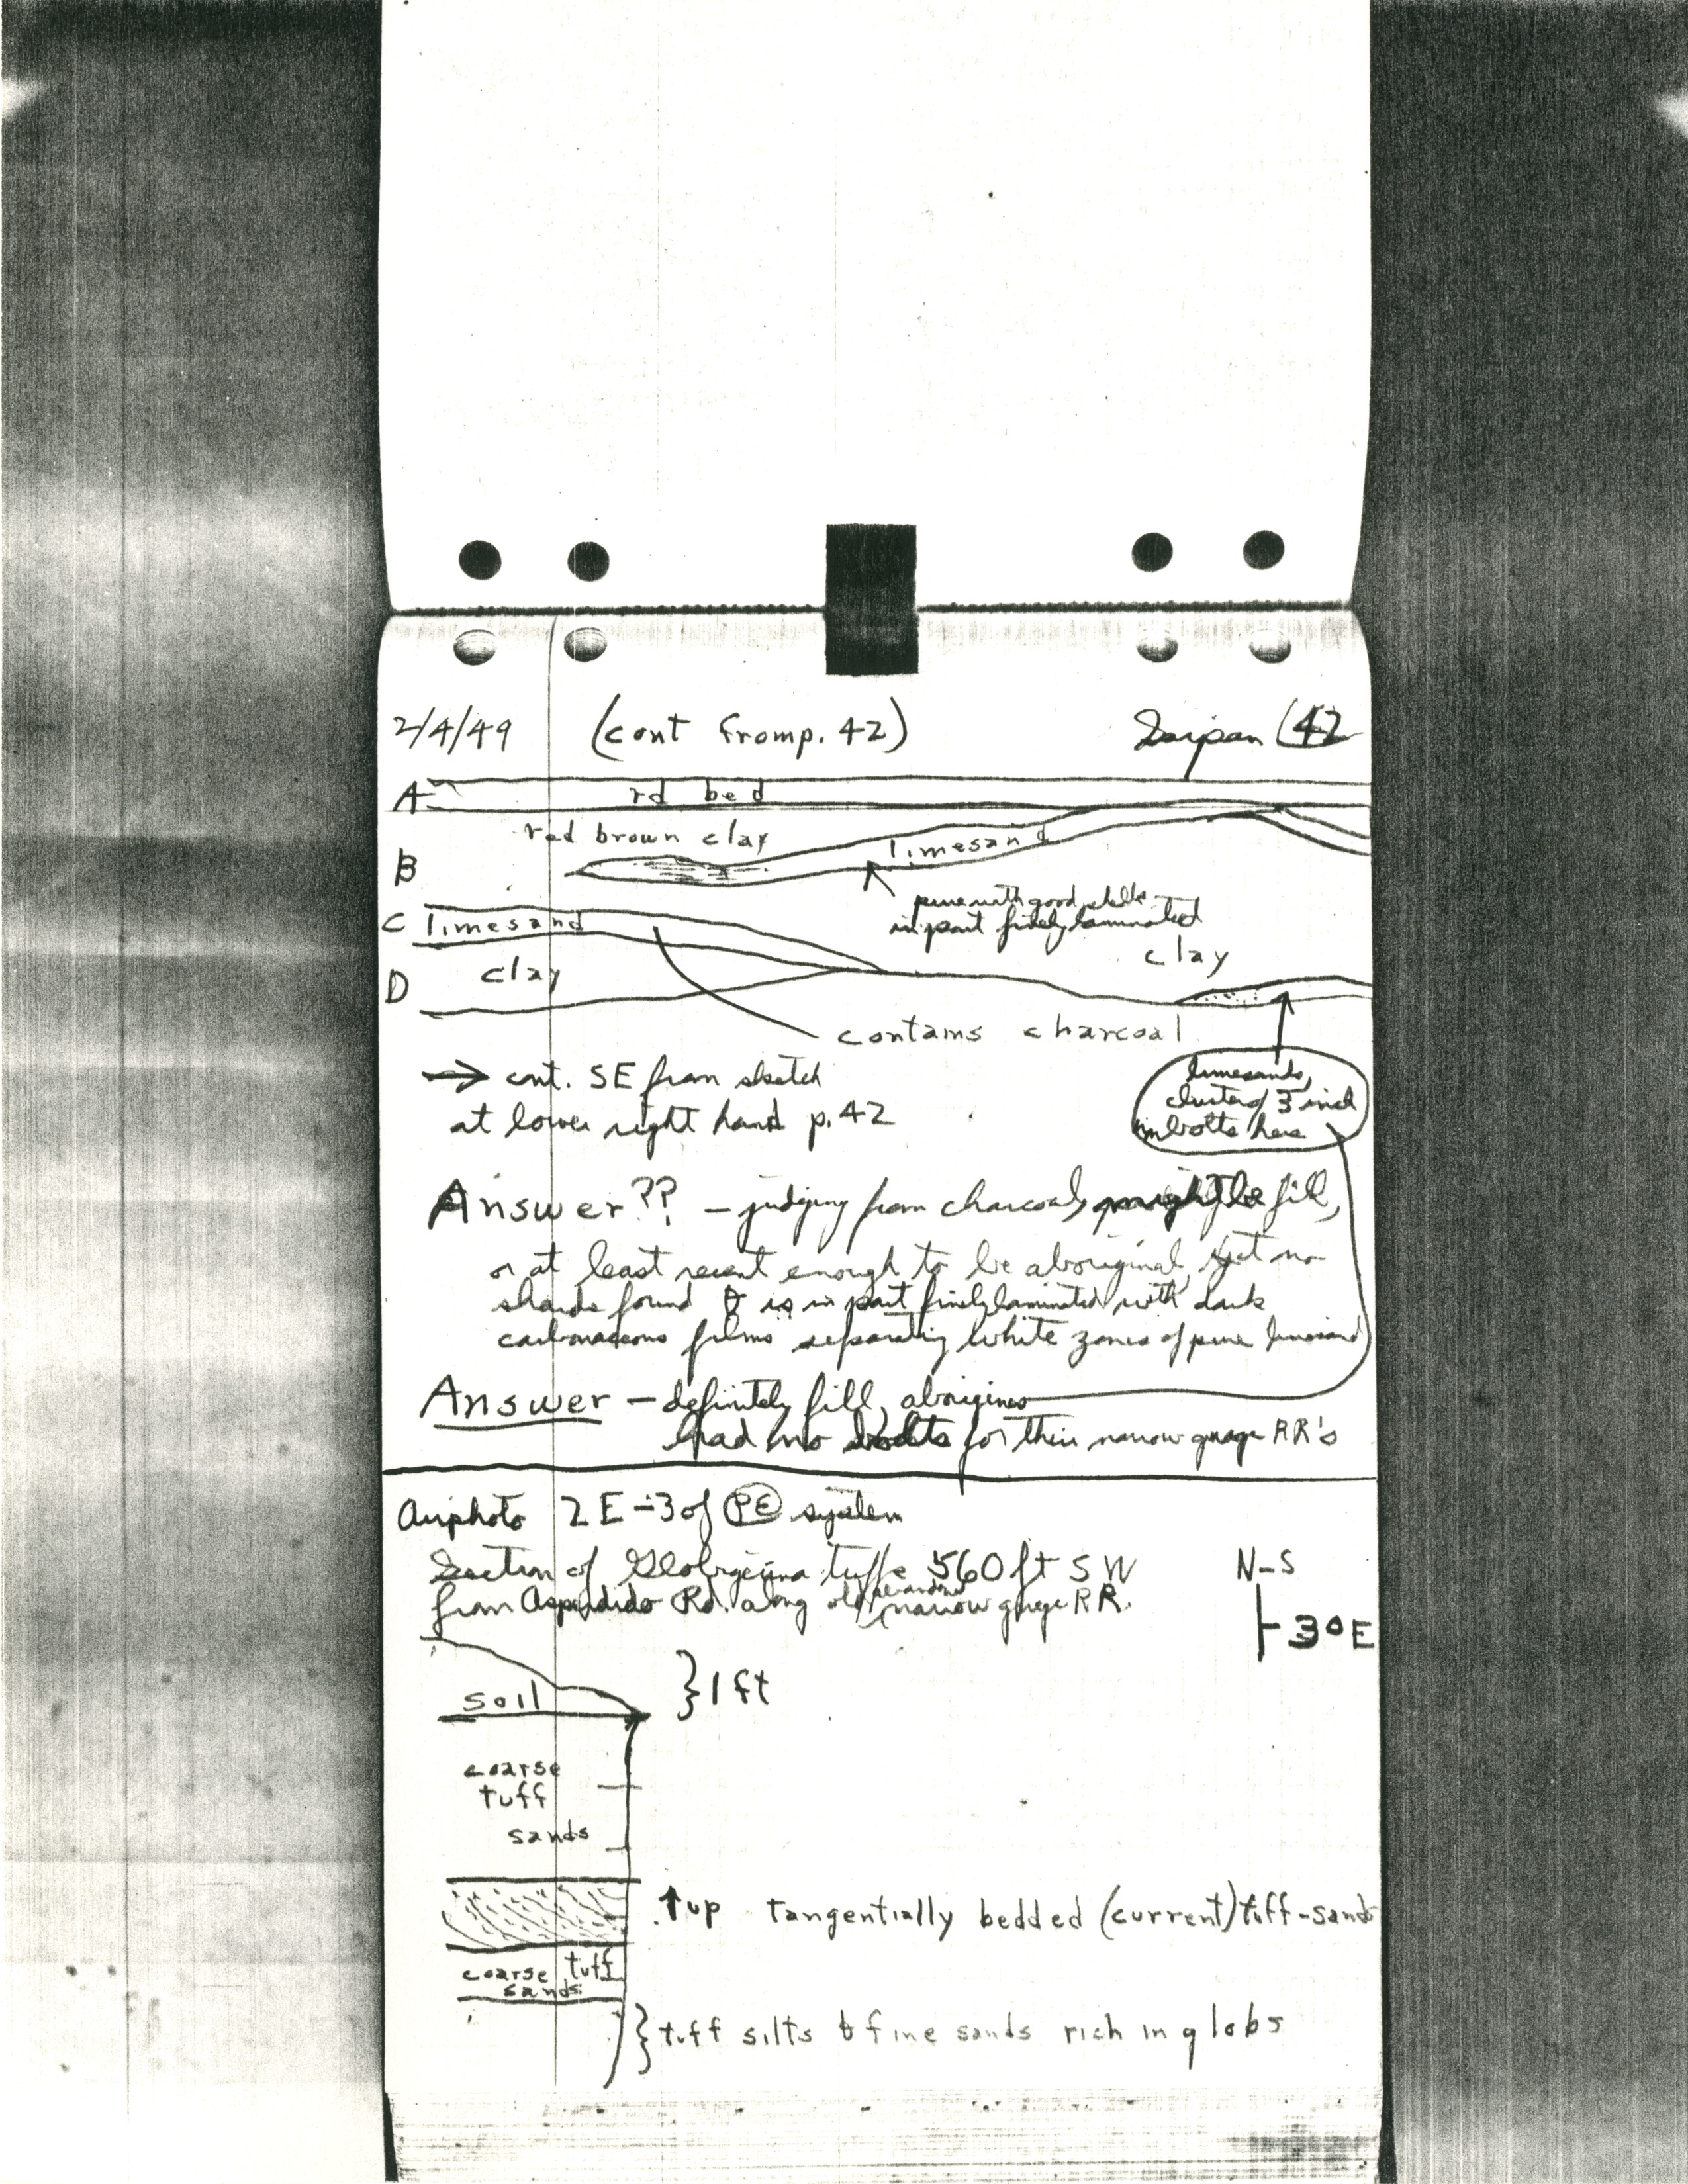 2/4/49 (cont from p. 42) Saipan (42
A rd bed
red brown clay
limesand
B
pure with good shells
in part finely laminated
C limesand
clay
clay
D
contains charcoal
→ cont. SE from sketch
at lower right hand p. 42
limesands,
cluster of 3 inch
bolts here
Answer?? – judging from charcoal, might be fill,
or at least recent enough to be aboriginal, yet no
shards found. It is in part finely laminated with dark
carbonaceous films separating white zones of pure limesand
Answer – definitely fill, aborigines
had no bolts for their narrow guage RR's
Airphoto 2E-3 of PE system
Section of Globigerina tuffs 560 ft SW
from Rd. along old abandoned narrow gauge RR.
N-S
3° E
soil } 1 ft
coarse
tuff
sands
↑ up tangentially bedded (current) tuff-sands
coarse tuff
sands
} tuff silts & fine sands rich in globs